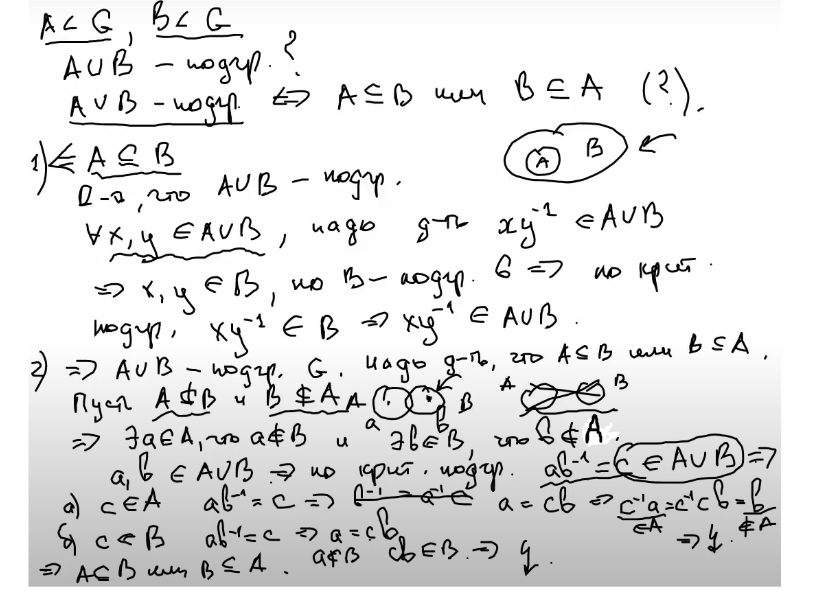 A < G, B < G
A ∪ B – подгр. ?
A ∪ B – подгр. ⇔ A ⊆ B или B ⊆ A (?).
1) ⇐ A ⊆ B
A B
Д-ть, что A ∪ B – подгр.
∀ x, y ∈ A ∪ B, надо д-ть xy⁻¹ ∈ A ∪ B
⇒ x, y ∈ B, но B – подгр. G ⇒ по крит.
подгр. xy⁻¹ ∈ B ⇒ xy⁻¹ ∈ A ∪ B.
2) ⇒ A ∪ B – подгр. G. Надо д-ть, что A ⊆ B или B ⊆ A.
Пусть A ⊄ B и B ⊄ A A B A B
a b
⇒ ∃ a ∈ A, что a ∉ B и ∃ b ∈ B, что b ∉ A.
a, b ∈ A ∪ B ⇒ по крит. подгр. ab⁻¹ = c ∈ A ∪ B ⇒
а) c ∈ A ab⁻¹ = c ⇒ b⁻¹ = a⁻¹c a = cb ⇒ c⁻¹a = c⁻¹cb = b
∈A ∉A
⇒ ↯.
б) c ∈ B ab⁻¹ = c ⇒ a = cb
a ∉ B cb ∈ B. ⇒ ↯.
⇒ A ⊆ B или B ⊆ A.